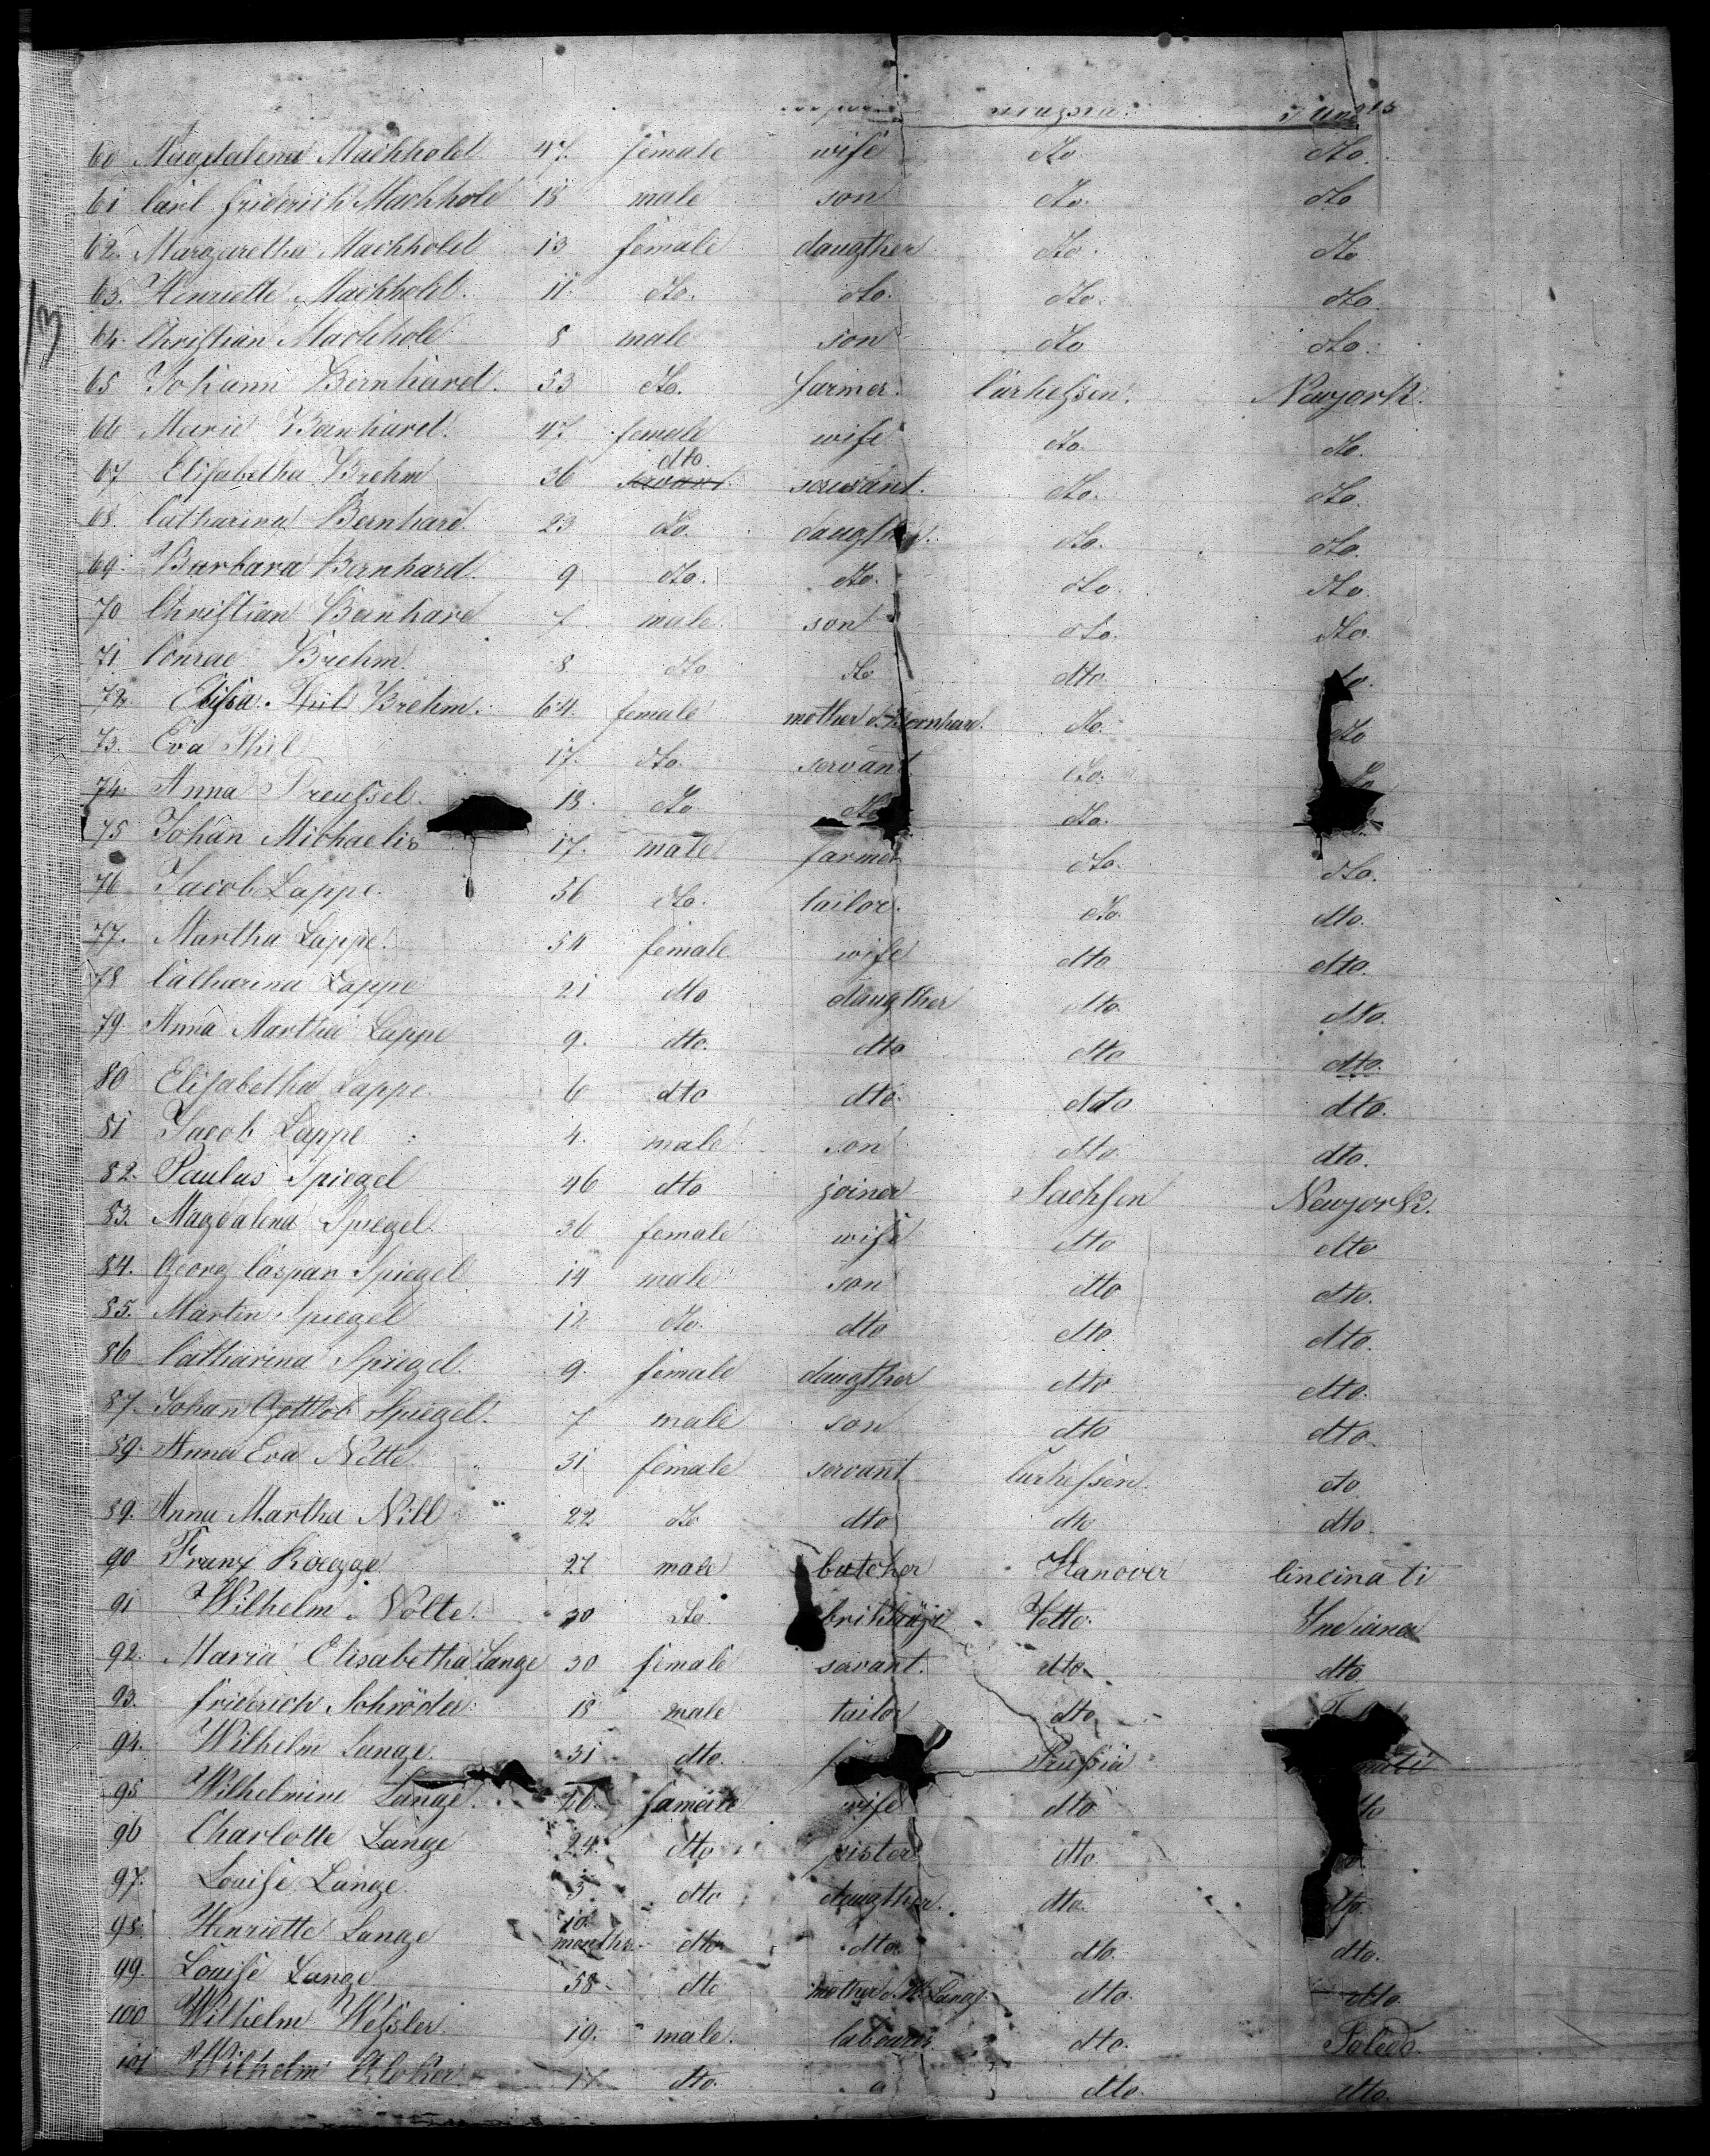 60 Magdalena Machhold 47. female wife dto. dto.
61 Carl Friderich Machhold 18 male son dto. dto
62. Margaretha Machhold 13 female daugther dto. dto
63. Henriette Machhold. 11. dto. dto. dto. dto
64. Christian Machhold 8 male son dto dto.
65 Johann Bernhard. 53 dto. farmer. Curhessen. Newyork.
66 Marie Bernhard. 47 female wife dto. dto.
67 Elisabetha Brehm 36 servant dto. servant. dto. dto.
68. Catharina Bernhard. 23 dto. daugther. dto. dto.
69. Barbara Bernhard. 9 dto. dto. dto. dto.
70 Christian Bernhard 7 male. son dto. dto.
71 Conrad Brehm. 8 dto dto dto
72. Brehm. 64. female mother d. Bernhard. dto. dto
73. Eva 17. dto. servant dto.
74. Anna 18. dto. dto dto.
75 Johan Michaelis 17. male farmer dto. dto.
76 Jacob Lappe. 56 dto. tailor. dto. dto.
77. Martha Lappe. 54 female wife dto dto.
78 Catharina Lappe 21 dto daugther dto. dto.
79. Anna Martha Lappe 9. dto. dto dto dto.
80 Elisabetha Lappe. 6 dto dto. dto dto.
81 Jacob Lappe 4. male son dto. dto.
82. Paulus Spiegel 46 dto joiner Sachsen Newyork.
83. Magdalena Spiegel. 36 female wife dto dto
84. Georg Caspar Spiegel 14 male son dto dto.
85. Martin Spiegel 12 dto. dto dto dto.
86 Catharina Spiegel. 9. female daugther dto dto.
87. Johan Gottlob Spiegel. 7 male son dto dto.
89. Anna Eva Nette 31 female servant Curhessen. dto.
89. Anna Martha Nill 22 dto dto dto dto.
90 Franz Roegge 27 male butcher Hanover Cincinati
91 Wilhelm Nolte. 30 dto. dto. Indiana
92. Maria Elisabetha Lange 30 female servant. dto. dto
93. Friderich Schröder. 18 male tailor dto
94. Wilhelm Lange. 31 dto. Prussia
95 Wilhelmine Lange. 26. fameile wife dto
96 Charlotte Lange 24. dto sister dto.
97. Louise Lange. 3 dto daugther. dto. dto.
98. Henriette Lange 10. months. dto dto. dto. dto.
99. Louise Lange 58 dto mother d. W. Lang. dto. dto
100 Wilhelm Wessler. 19. male. labourer dto. Toledo.
101 Wilhelm 17 dto. dto. dto.